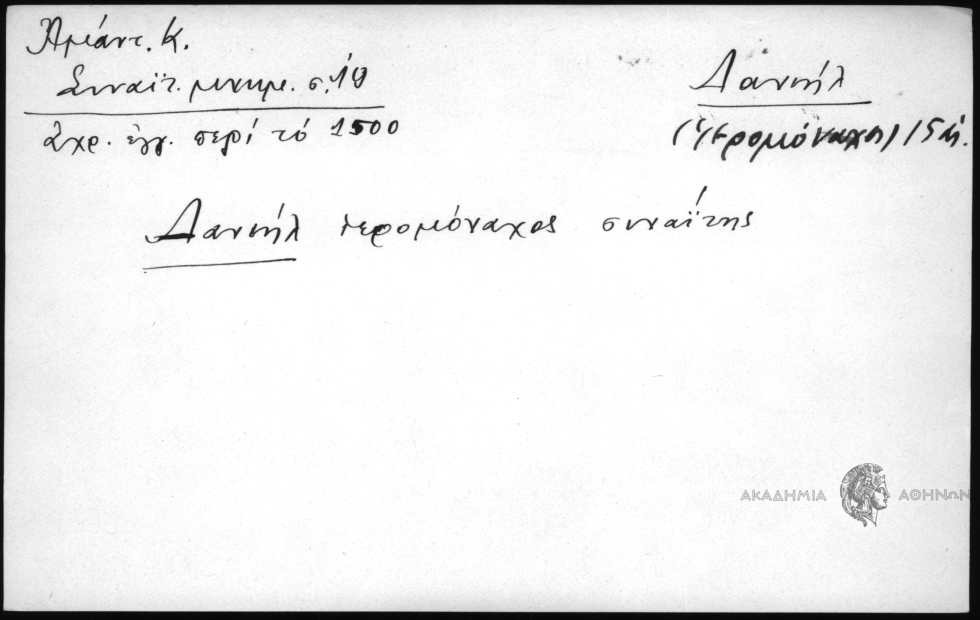 Ἀμάντ. Κ.
Σιναϊτ. μνημ. σ. 19
ἀχρ. ἔγγ. περί τό 1500
Δανιήλ
(Ἱερομόναχος) 15 αἰ.
Δανιήλ ἱερομόναχος σιναΐτης
ΑΚΑΔΗΜΙΑ ΑΘΗΝΩΝ